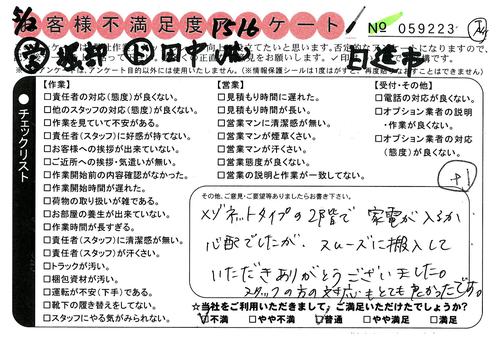 5/2
お客様不満足度アンケート P516
№ 059223
日進市
チェックリスト
【作業】
□責任者の対応(態度)が良くない。
□他のスタッフの対応(態度)が良くない。
□作業を見ていて不安がある。
□責任者(スタッフ)に好感が持てない。
□お客様への挨拶が出来ていない。
□ご近所への挨拶・気遣いが無い。
□作業開始前の内容確認がなかった。
□作業開始時間が遅れた。
□荷物の取り扱いが雑である。
□お部屋の養生が出来ていない。
□作業時間が長すぎる。
□責任者(スタッフ)に清潔感が無い。
□責任者(スタッフ)が汗くさい。
□トラックが汚い。
□梱包資材が汚い。
□運転が不安(下手)である。
□靴下の履き替えをしてない。
□スタッフにやる気がみられない。
【営業】
□見積もり時間に遅れた。
□見積もり時間が長い。
□営業マンに清潔感が無い。
□営業マンが煙草くさい。
□営業マンが汗くさい。
□営業態度が良くない。
□営業の説明と作業が一致してない。
【受付・その他】
□電話の対応が良くない。
□オプション業者の説明
・作業が良くない。
□オプション業者の対応
(態度)が良くない。
+1
その他、ご意見・ご要望等ありましたらお書き下さい。
メゾネットタイプの2階で 家電が入るか
心配でしたが、スムーズに搬入して
いただきありがとうございました。
スタッフの方の対応もとても良かったです。
☆当社をご利用いただきまして、ご満足いただけたでしょうか?
□不満 □やや不満 □普通 □やや満足 □満足